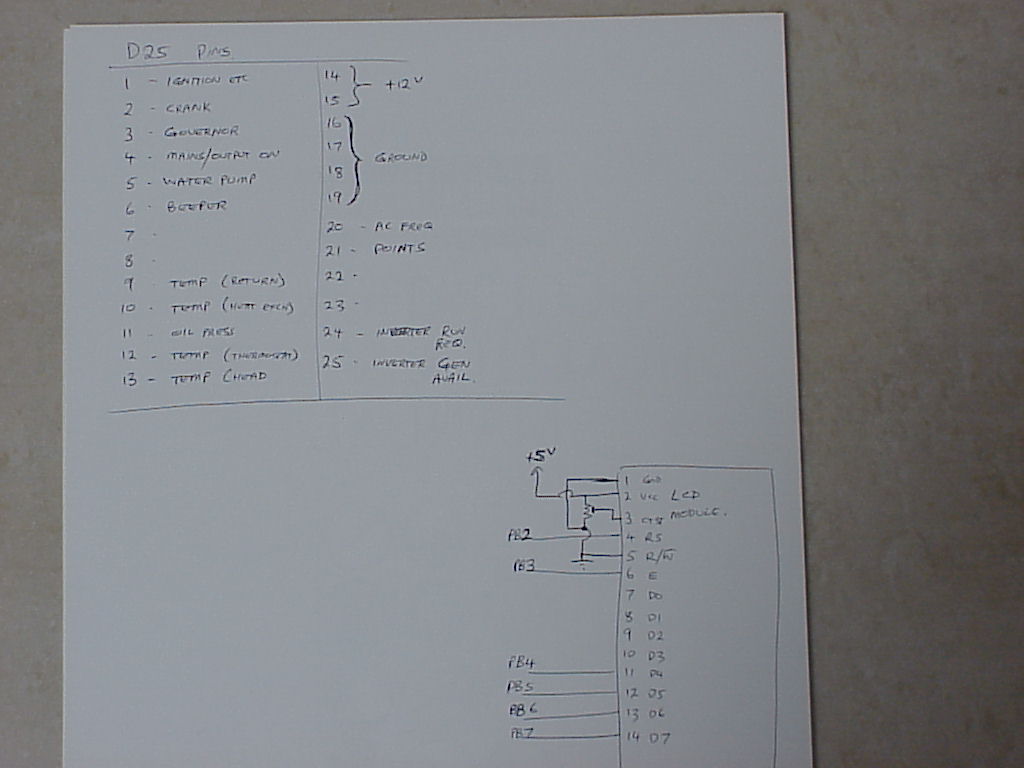 D25 PINS
1 - IGNITION ETC
2 - CRANK
3 - GOVERNOR
4 - MAINS/OUTPUT ON
5 - WATER PUMP
6 - BEEPER
7 -
8 -
9 - TEMP (RETURN)
10 - TEMP (HEAT EXCH)
11 - OIL PRESS
12 - TEMP (THERMOSTAT)
13 - TEMP (HEAD
14
15
+12V
16
17
18
19
GROUND
20 - AC FREQ
21 - POINTS
22 -
23 -
24 - INVERTER RUN
REQ.
25 - INVERTER GEN
AVAIL.
+5V
1 GND
2 VCC LCD
3 MODULE.
PB2 4 RS
5 R/W
PB3 6 E
7 D0
8 D1
9 D2
10 D3
PB4 11 D4
PB5 12 D5
PB6 13 D6
PB7 14 D7